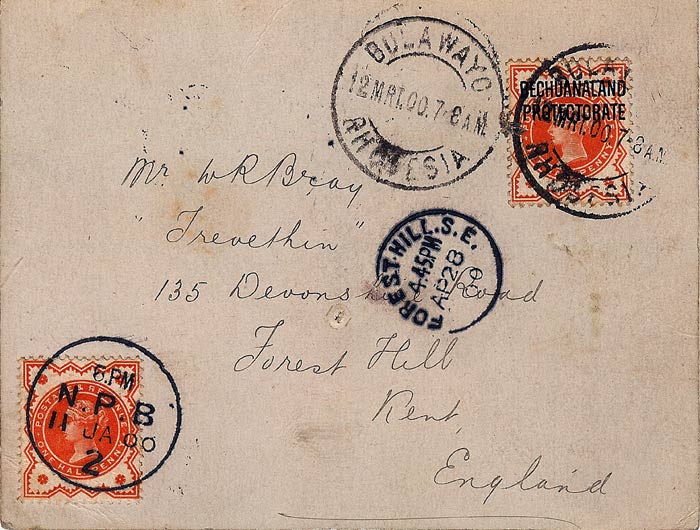 BULAWAYO
12 MRT.00.7-8 A.M.
RHODESIA
BECHUANALAND
PROTECTORATE
BULAWAYO
12 MRT.00.7-8 A.M.
RHODESIA
Mr W R Bray
"Trevethin"
135 Devonshire Road
Forest Hill
Kent,
England
FOREST-HILL.S.E.
4.45PM
AP28
00
6.PM
N.P.B
11 JA 00
2
POSTAGE & REVENUE
ONE HALFPENNY